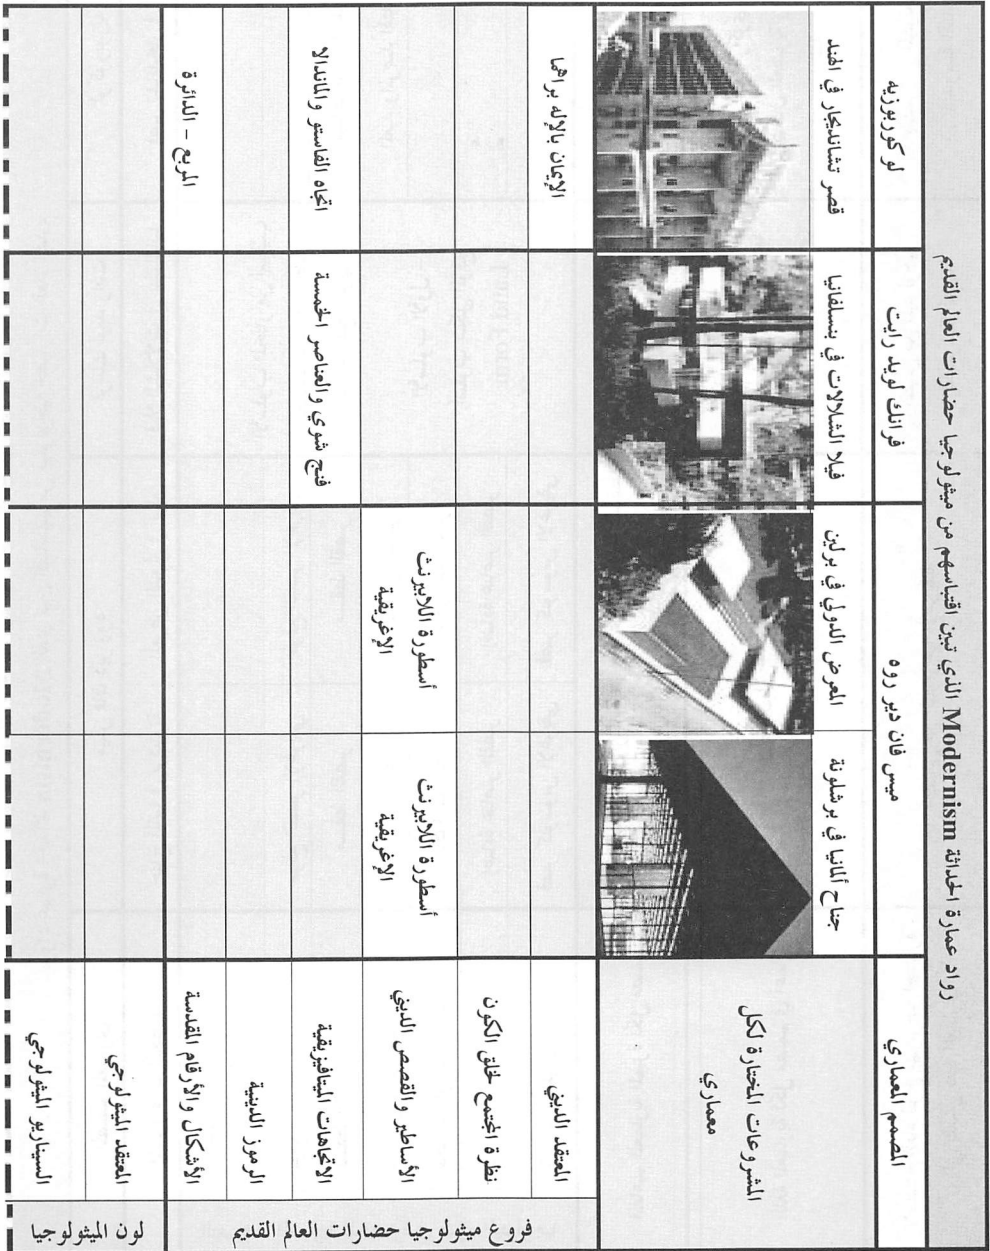 رواد عمارة الحداثة Modernism الذي تبين اقتباسهم من ميثولوجيا حضارات العالم القديم
المصمم المعماري
ميس فان دير روه
فرانك لويد رايت
لو كوربوزيه
المشروعات المختارة لكل
معماري
جناح ألمانيا في برشلونة
المعرض الدولي في برلين
فيلا الشلالات في بنسلفانيا
قصر تشانديجار في الهند
فروع ميثولوجيا حضارات العالم القديم
المعتقد الديني
الإيمان بالإله براهما
نظرة المجتمع لخلق الكون
الأساطير والقصص الديني
أسطورة اللابيرنث
الإغريقية
أسطورة اللابيرنث
الإغريقية
الاتجاهات الميتافيزيقية
فنج شوي والعناصر الخمسة
اتجاه الفاستو والماندالا
الرموز الدينية
الأشكال والأرقام المقدسة
المربع - الدائرة
لون الميثولوجيا
المعتقد الميثولوجي
السيناريو الميثولوجي